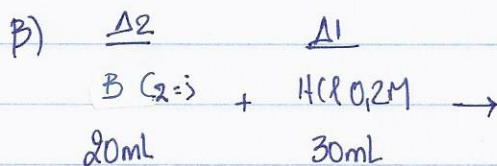 β) Δ2 Δ1
B C₂=; + HCl 0,2M →
20mL 30mL